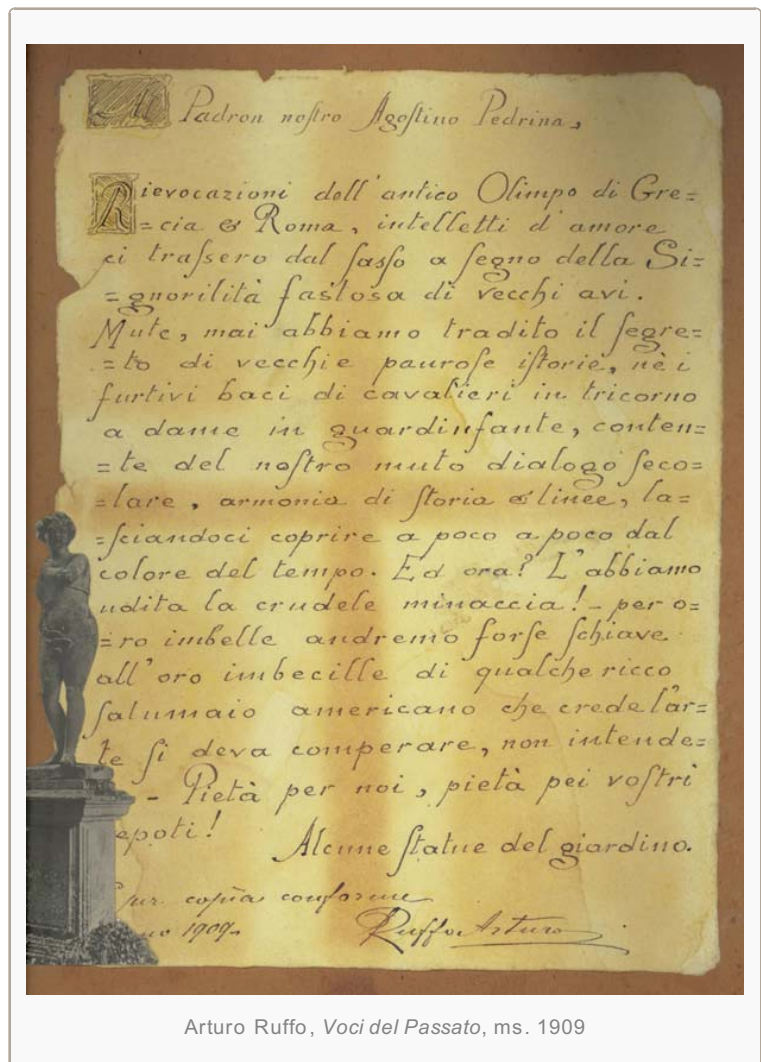 Al Padron noſtro Agoſtino Pedrina,
Rievocazioni dell'antico Olimpo di Gre=
=cia & Roma, intelletti d'amore
ci traſsero dal ſaſſo a ſegno della Si=
=gnorilità faſtosa di vecchi avi.
Mute, mai abbiamo tradito il ſegre=
=to di vecchie pauroſe iſtorie, nè i
furtivi baci di cavalieri in tricorno
a dame in guardinfante, conten=
=te del noſtro muto dialogo ſeco=
=lare, armonia di ſtoria & linee, la=
=ſciandoci coprire a poco a poco dal
colore del tempo. Ed ora? L'abbiamo
udita la crudele minaccia! - per o=
=ro imbelle andremo forſe ſchiave
all'oro imbecille di qualche ricco
ſalumaio americano che crede l'ar=
te ſi deva comperare, non intende=
- Pietà per noi, pietà pei voſtri
epoti!
Alcune ſtatue del giardino.
Per copia conforme
no 1909-
Ruffo Arturo
Arturo Ruffo, Voci del Passato, ms. 1909